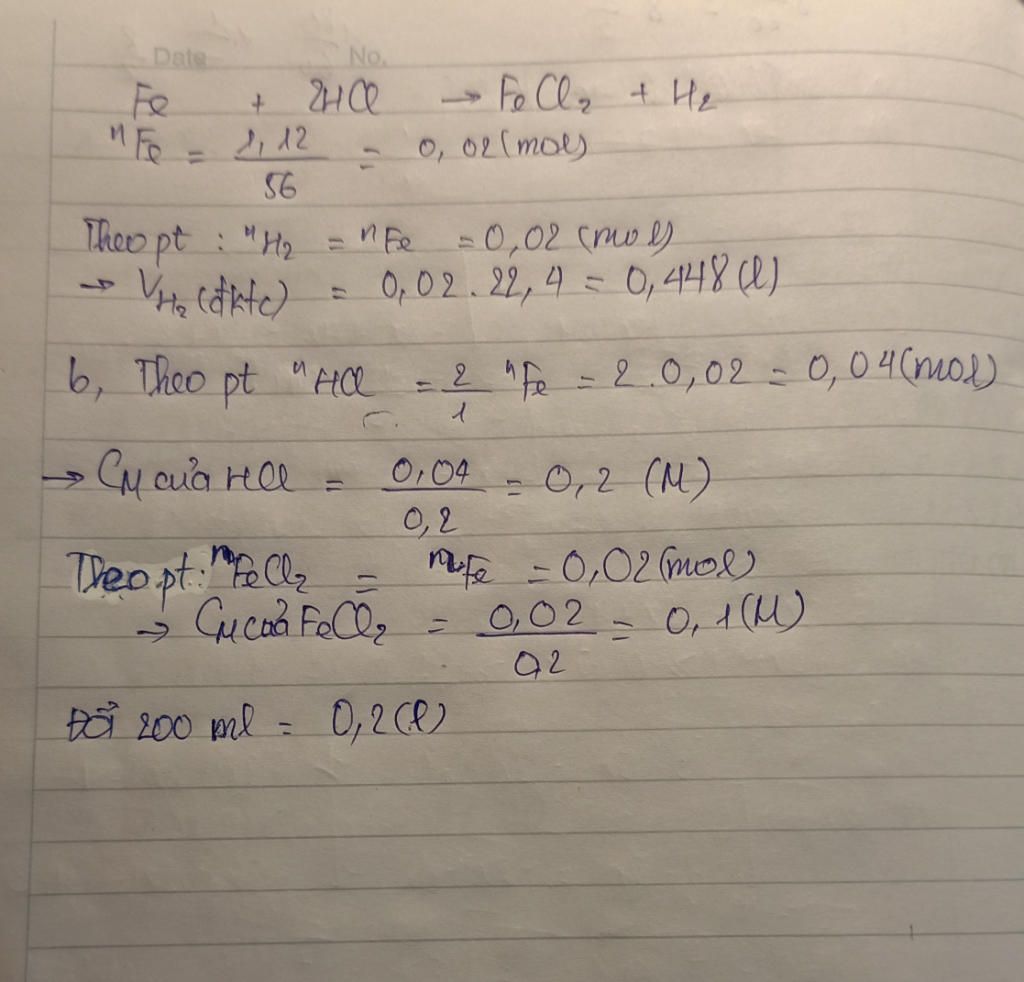 Date No.
Fe + 2HCl → FeCl₂ + H₂
nFe = 1,12/56 = 0,02 (mol)
Theo pt : nH₂ = nFe = 0,02 (mol)
→ VH₂ (đktc) = 0,02 . 22,4 = 0,448 (l)
b, Theo pt nHCl = 2/1 nFe = 2 . 0,02 = 0,04 (mol)
→ CM của HCl = 0,04/0,2 = 0,2 (M)
Theo pt : nFeCl₂ = nFe = 0,02 (mol)
→ CM của FeCl₂ = 0,02/0,2 = 0,1 (M)
Đổi 200 ml = 0,2 (l)